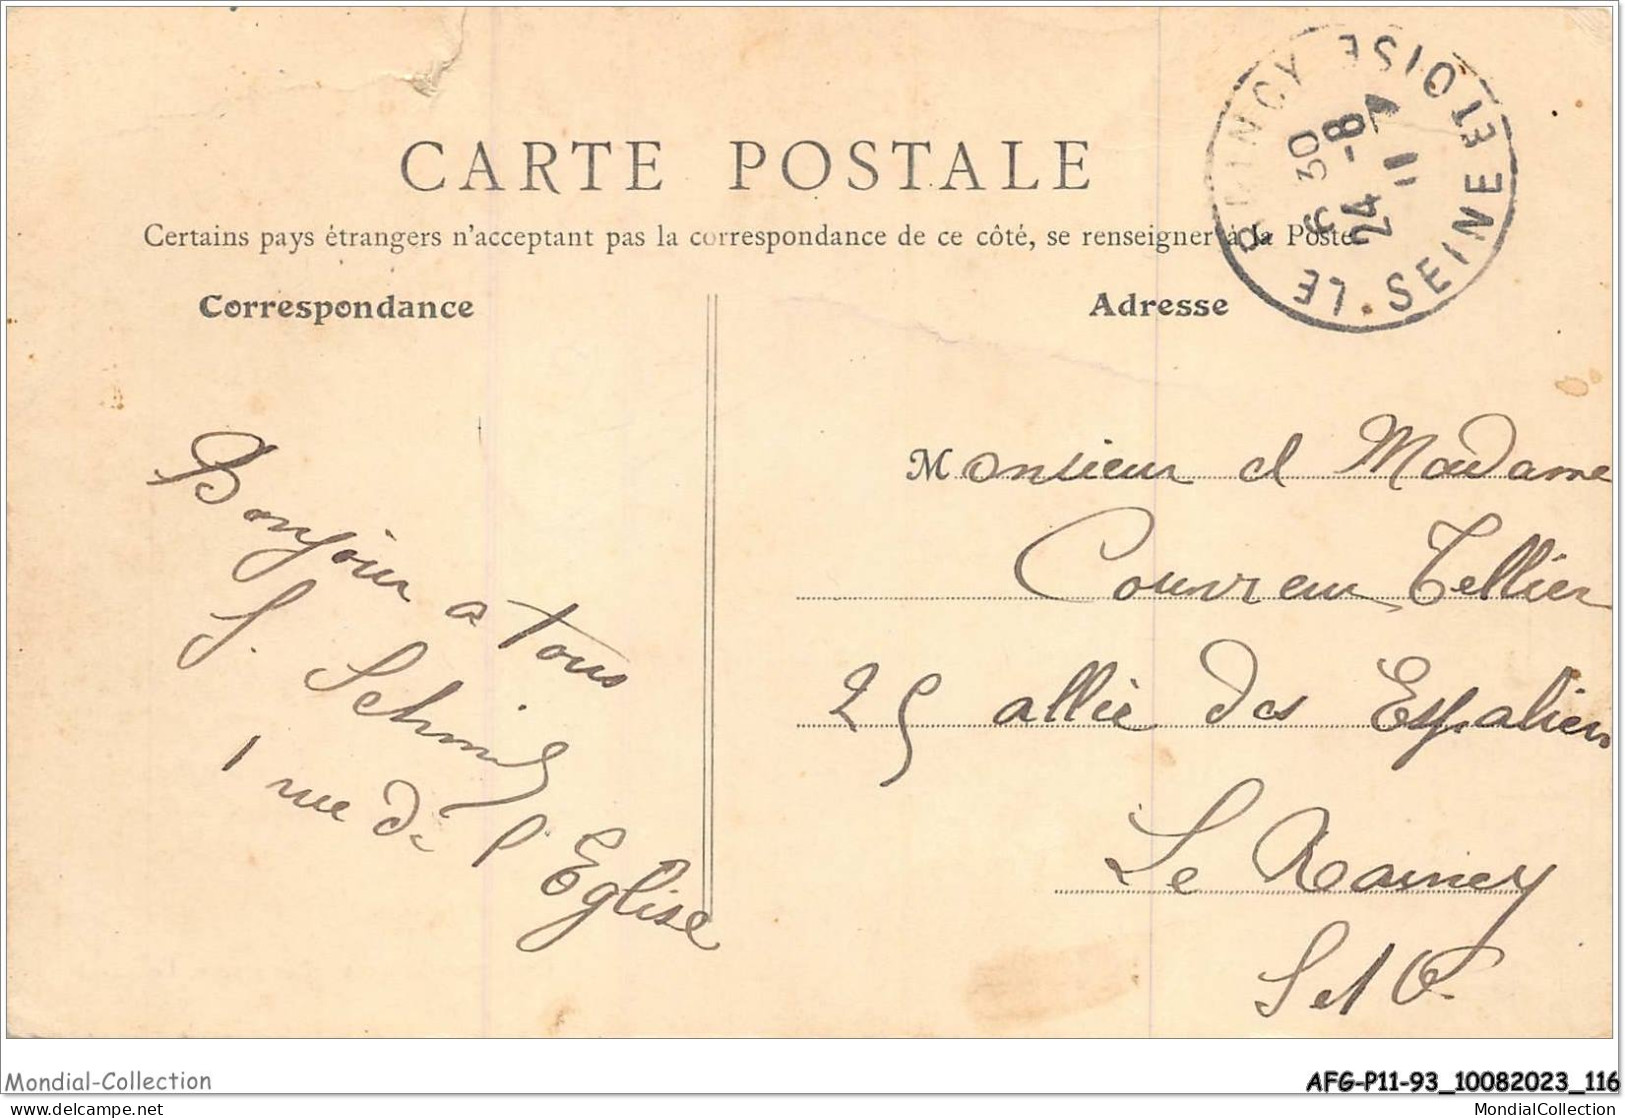 CARTE POSTALE
Certains pays étrangers n'acceptant pas la correspondance de ce côté, se renseigner à la Poste
Correspondance
Adresse
LE RAINCY SEINE ET OISE
6 30
24 -8
11
Bonjour a tous
S. Schmid
1 rue de l'Eglise
Monsieur et Madame
Couvreur Tellier
25 allée des Espaliers
Le Raincy
S et O.
Mondial-Collection
AFG-P11-93_10082023_116
delcampe.net
MondialCollection